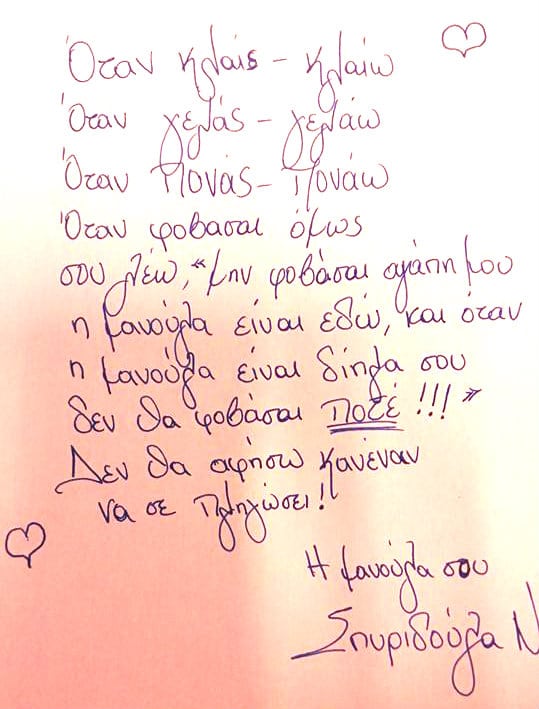 Όταν κλαις - κλαίω
Όταν γελάς - γελάω
Όταν Πονάς - Πονάω
Όταν φοβάσαι όμως
σου λέω, "μην φοβάσαι αγάπη μου
η μανούλα είναι εδώ, και όταν
η μανούλα είναι δίπλα σου
δεν θα φοβάσαι Ποτέ!!!"
Δεν θα αφήσω κανέναν
να σε Πληγώσει!
Η μανούλα σου
Σπυριδούλα Ν